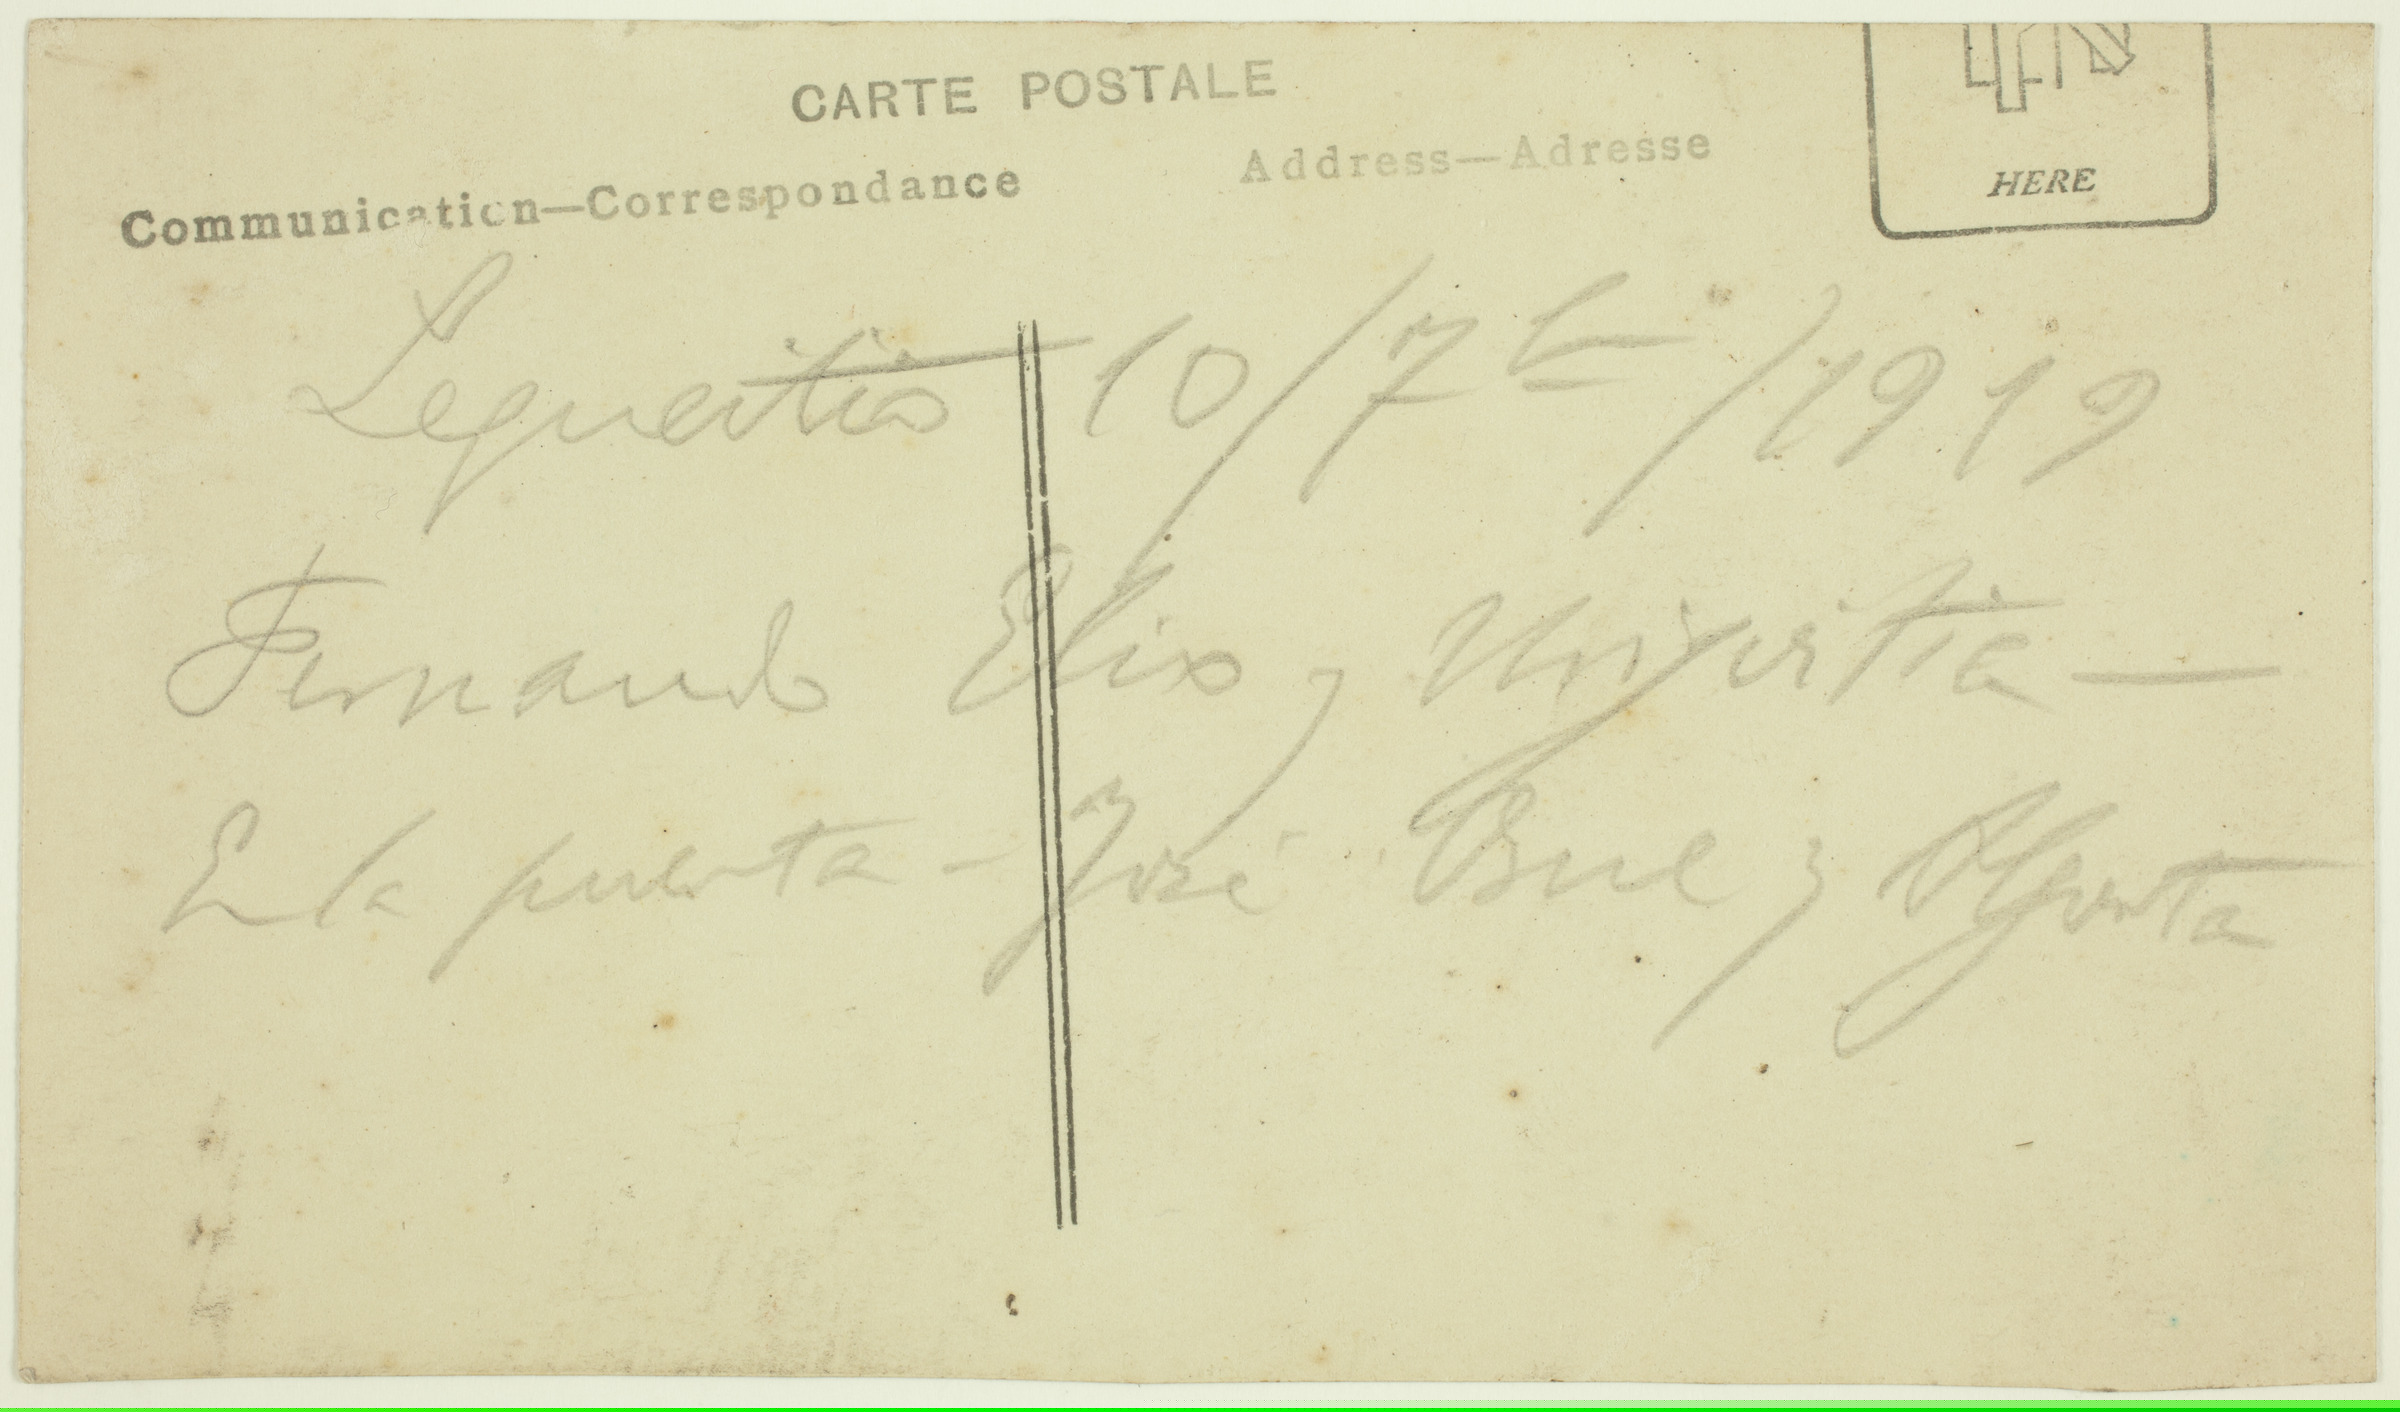 CARTE POSTALE
Communication—Correspondance
Address—Adresse
HERE
Lequeitio 10/7bre/1919
Fernando Elio y
En la puerta - José y